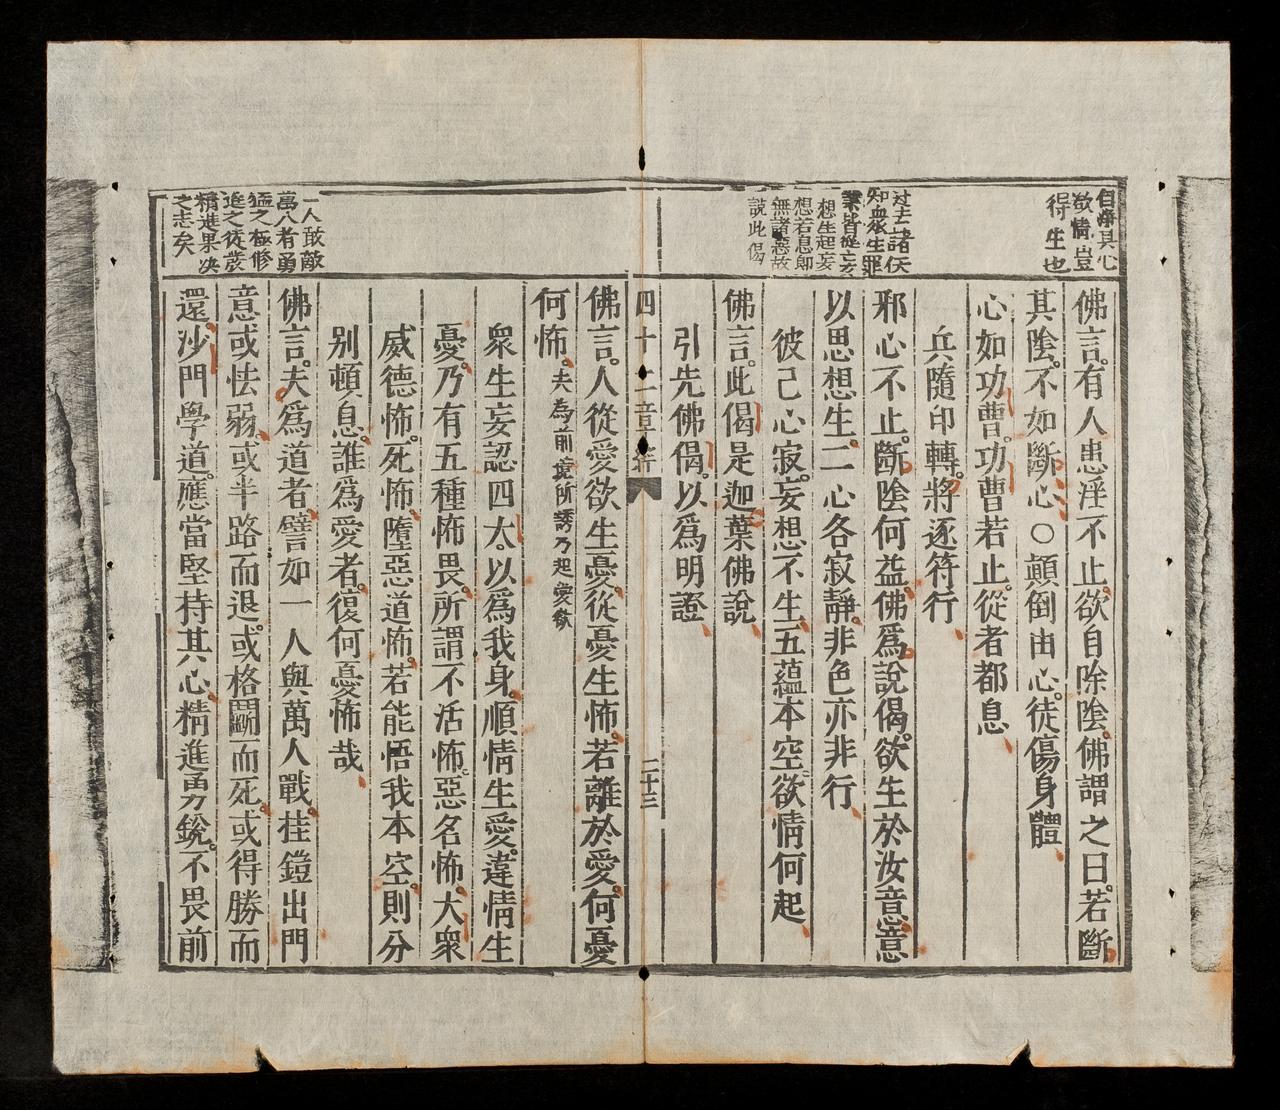 自淨其心
欲情豈
得生也
过去諸佞
知衆生罪
業皆從妄
想生起妄
想若息即
無諸惡故
說此偈
佛言。有人患淫不止。欲自除陰。佛謂之曰。若斷
其陰。不如斷心○顛倒由心。徒傷身體
心如功曹。功曹若止。從者都息
兵隨印轉。將逐符行
邪心不止。斷陰何益。佛爲說偈。欲生於汝意。意
以思想生。二心各寂靜。非色亦非行
彼己心寂。妄想不生。五蘊本空。欲情何起
佛言。此偈是迦葉佛說
引先佛偈。以爲明證
四十二章
二十三
一人敢敵
萬人者勇
猛之極修
進之徒茂
精進果决
之志矣
佛言。人從愛欲生憂。從憂生怖。若離於愛。何憂
何怖。夫為前境所誘乃起愛欲
衆生妄認四大。以爲我身。順情生愛。違情生
憂。乃有五種怖畏。所謂不活怖。惡名怖。大衆
威德怖。死怖。墮惡道怖。若能悟我本空。則分
别頓息。誰爲愛者。復何憂怖哉
佛言。夫爲道者。譬如一人與萬人戰。挂鎧出門
意或怯弱。或半路而退。或格鬬而死。或得勝而
還。沙門學道。應當堅持其心。精進勇銳。不畏前